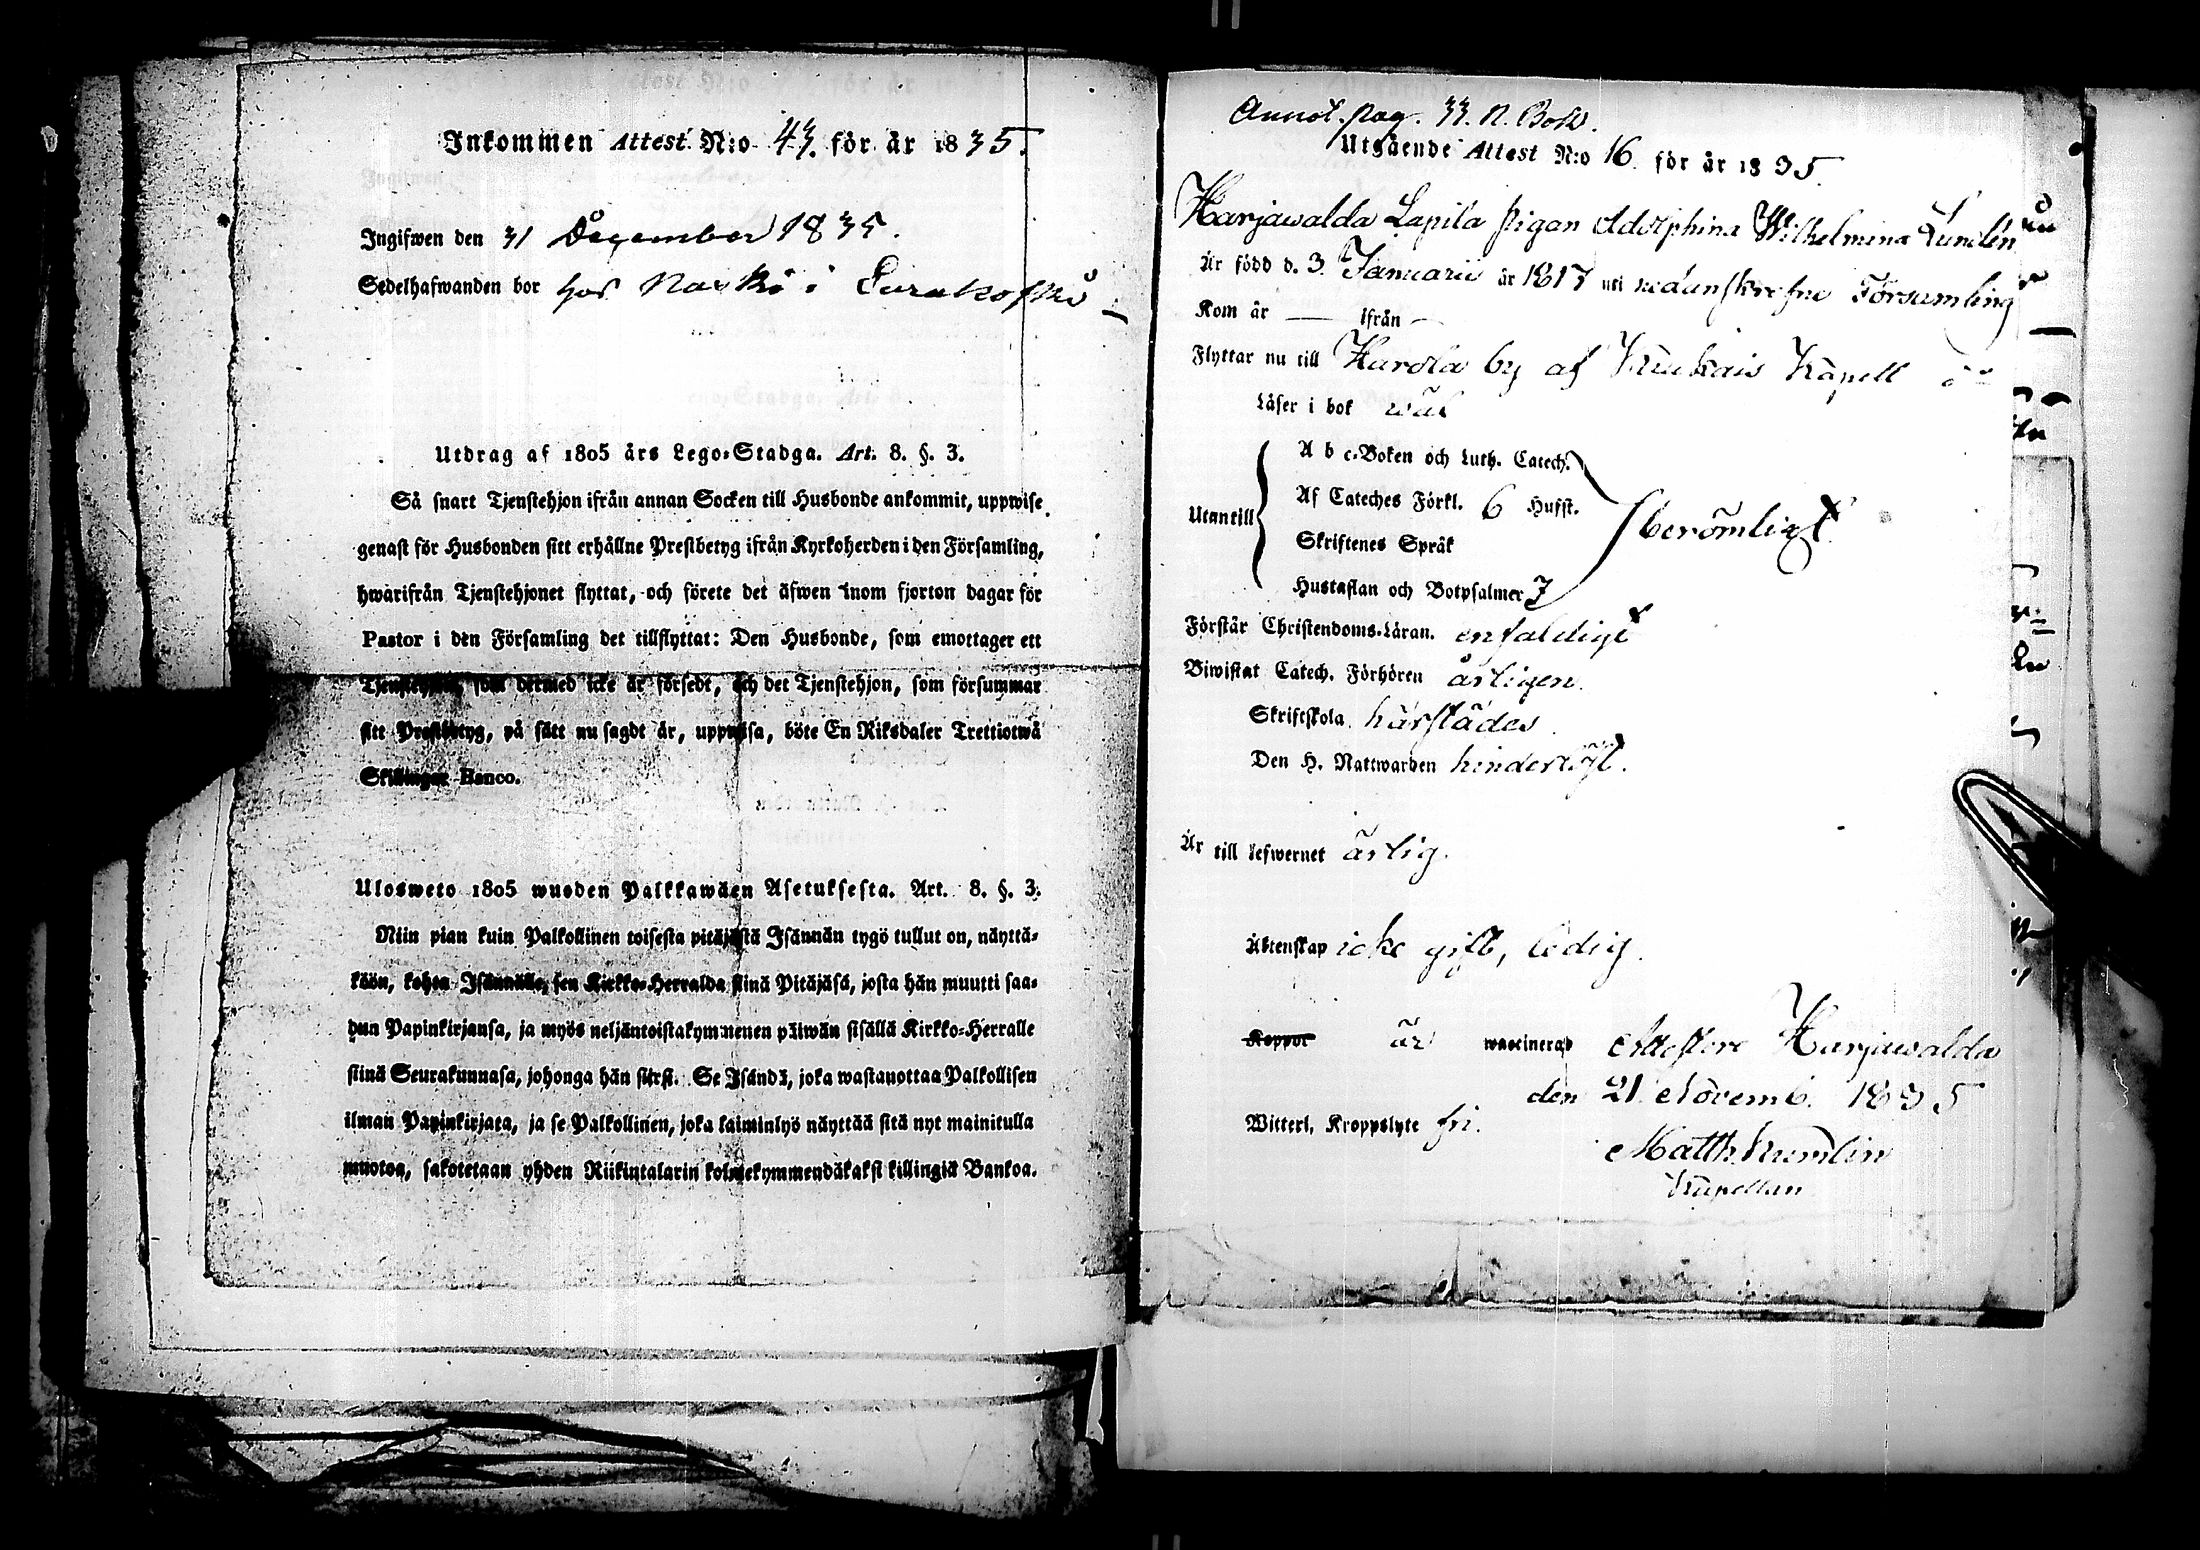 Inkommen Attest. N:o 43. för år 1835.
Ingifwen den 31 December 1835.
Sedelhafwanden bor hos Naski i
Utdrag af 1805 års Lego-Stadga. Art. 8. §. 3.
Så snart Tjenstehjon ifrån annan Socken till Husbonde ankommit, uppwise
genast för Husbonden sitt erhållne Prestbetyg ifrån Kyrkoherden i den Församling,
hwarifrån Tjenstehjonet flyttat, och förete det äfwen inom fjorton dagar för
Pastor i den Församling det tillflyttat: Den Husbonde, som emottager ett
Tjenstehjon, som dermed icke är försedt, och det Tjenstehjon, som försummar
sitt Prestbetyg, på sätt nu sagdt är, uppwisa, böte En Riksdaler Trettiotwå
Skillingar Banco.
Ulosweto 1805 wuoden Palkkawäen Asetuksesta. Art. 8. §. 3.
Niin pian kuin Palkollinen toisesta pitäjästä Isännän tygö tullut on, näyttä-
köön, kohta Isännälle, sen Kirkko-Herralda siinä Pitäjäsä, josta hän muutti saa-
dun Papinkirjansa, ja myös neljäntoistakymmenen päiwän sisällä Kirkko-Herralle
siinä Seurakunnasa, johonga hän siirsi. Se Isändä, joka wastanottaa Palkollisen
ilman Papinkirjata, ja se Palkollinen, joka laiminlyö näyttää sitä nyt mainitulla
muotoa, sakotetaan yhden Riikintalarin kolmekymmendäkaksi killingiä Bankoa.
Annot. pag. 33. N. Bok.
Utgående Attest N:o 16. för år 1835.
Harjawalda Lapila pigan Adolphina Wilhelmina Lundén
Är född d. 3. Januarii år 1817 uti nedanskrefne Församling
Kom år — ifrån —
Flyttar nu till Harola by af Kiukais Kapell
Läser i bok wäl
Utantill
A b c-Boken och Luth. Catech.
Af Cateches Förkl. 6 Hufst.
Skriftenes Språk
Hustaflan och Botpsalmer 7
berömligt
Förstår Christendoms-Läran. enfaldigt
Biwistat Catech. Förhören årligen.
Skriftskola härstädes
Den H. Nattwarden hinderlöst.
Är till lefwernet ärlig.
Äktenskap icke gift, ledig.
Koppor är waccinerad
Attestere Harjawalda
den 21 Novemb. 1835
Witterl. Kroppslyte fri.
Matth. Kumlin
Kapellan